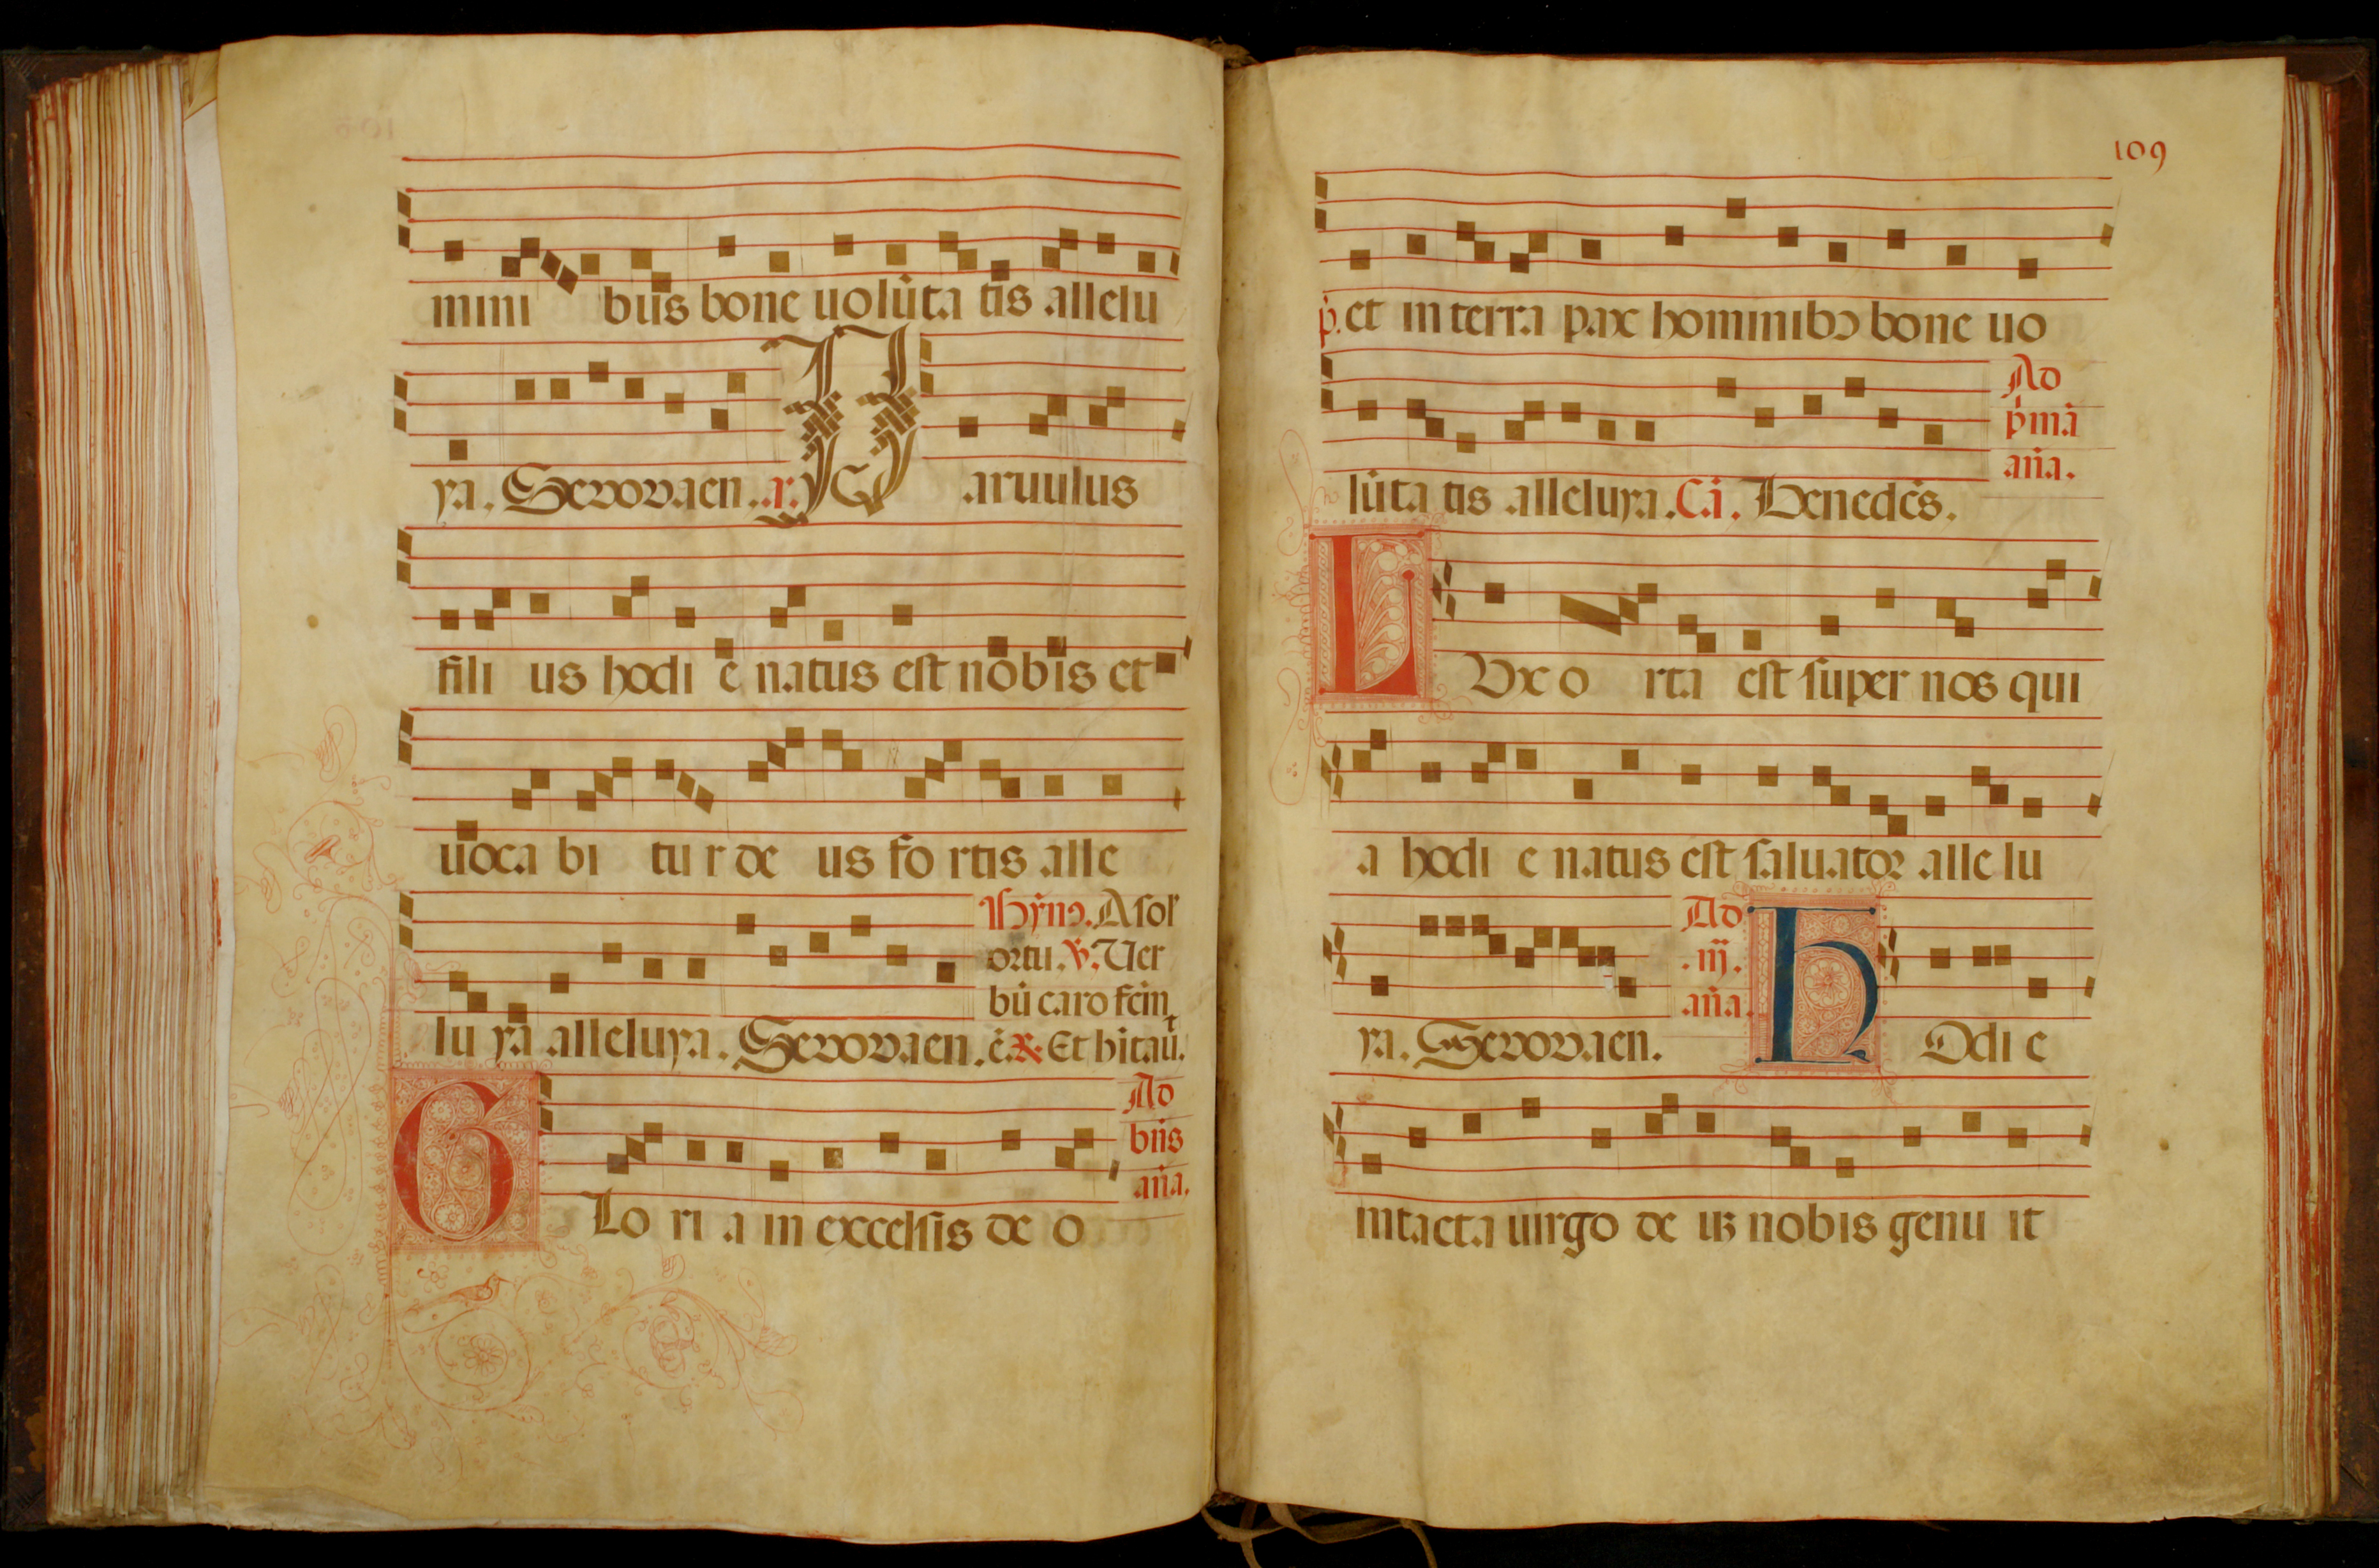 mini bus bone uolūta tis allelu
ya. Seuouaen. a. P aruulus
fili us hodi e natus est nobis et
uoca bi tur de us fo rtis alle
Hymnꝰ. A sol
ortu. ℣. Uer
bū caro fcm̄
lu ya alleluya. Seuouaen. ē. ℟. Et hītaū.
Ad
bn̄s
an̄a.
G Lo ri a in excelsis de o
109
p̄. et in terra pax hominibꝰ bone uo
Ad
p̄mā
an̄a.
lūta tis alleluya. Cā. Benedēs.
L Ux o rta est super nos qui
a hodi e natus est saluator alle lu
Ad
.iij.
an̄a.
ya. Seuouaen. H Odi e
intacta uirgo de us nobis genu it